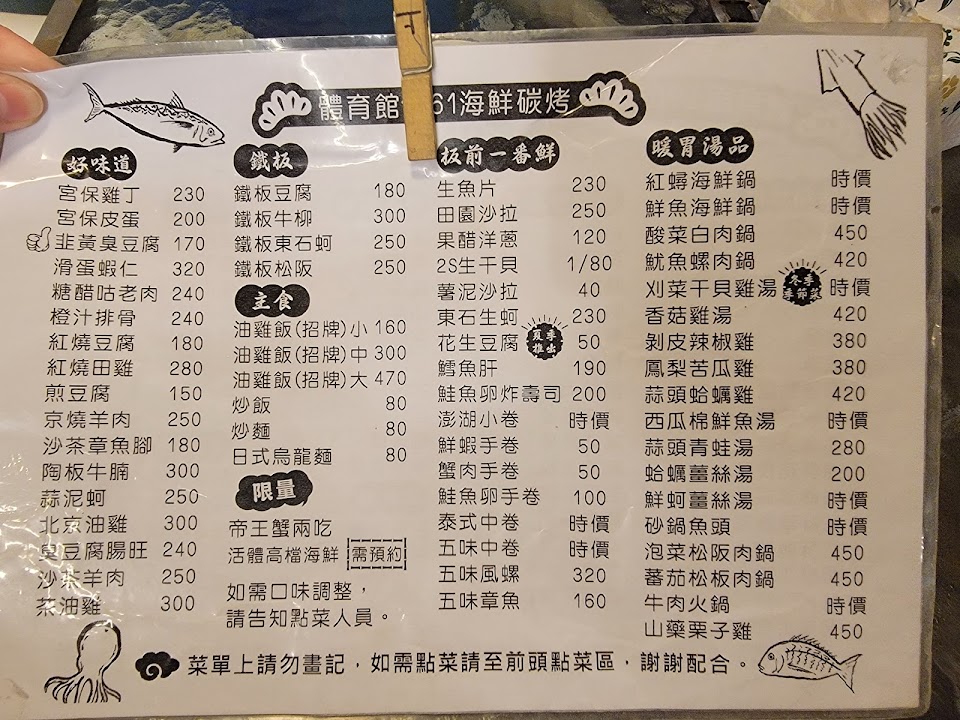 體育館 61海鮮碳烤
好味道
宮保雞丁 230
宮保皮蛋 200
韭黃臭豆腐 170
滑蛋蝦仁 320
糖醋咕老肉 240
橙汁排骨 240
紅燒豆腐 180
紅燒田雞 280
煎豆腐 150
京燒羊肉 250
沙茶章魚腳 180
陶板牛腩 300
蒜泥蚵 250
北京油雞 300
臭豆腐腸旺 240
沙茶羊肉 250
茶油雞 300
鐵板
鐵板豆腐 180
鐵板牛柳 300
鐵板東石蚵 250
鐵板松阪 250
主食
油雞飯(招牌)小 160
油雞飯(招牌)中 300
油雞飯(招牌)大 470
炒飯 80
炒麵 80
日式烏龍麵 80
限量
帝王蟹兩吃
活體高檔海鮮 需預約
如需口味調整,
請告知點菜人員。
板前一番鮮
生魚片 230
田園沙拉 250
果醋洋蔥 120
2S生干貝 1/80
薯泥沙拉 40
東石生蚵 230
花生豆腐 夏季推出 50
鱈魚肝 190
鮭魚卵炸壽司 200
澎湖小卷 時價
鮮蝦手卷 50
蟹肉手卷 50
鮭魚卵手卷 100
泰式中卷 時價
五味中卷 時價
五味風螺 320
五味章魚 160
暖胃湯品
紅蟳海鮮鍋 時價
鮮魚海鮮鍋 時價
酸菜白肉鍋 450
魷魚螺肉鍋 420
刈菜干貝雞湯 冬季季節菜 時價
香菇雞湯 420
剝皮辣椒雞 380
鳳梨苦瓜雞 380
蒜頭蛤蠣雞 420
西瓜棉鮮魚湯 時價
蒜頭青蛙湯 280
蛤蠣薑絲湯 200
鮮蚵薑絲湯 時價
砂鍋魚頭 時價
泡菜松阪肉鍋 450
蕃茄松板肉鍋 450
牛肉火鍋 時價
山藥栗子雞 450
菜單上請勿畫記,如需點菜請至前頭點菜區,謝謝配合。